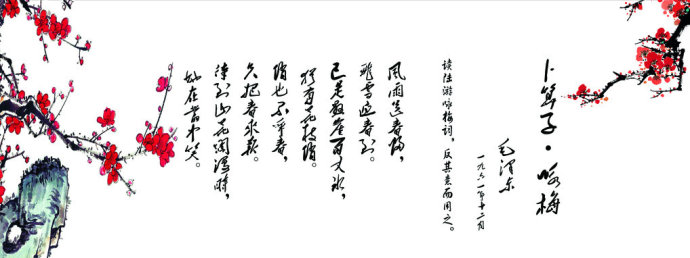 卜算子·咏梅
毛泽东
一九六一年十二月
读陆游咏梅词，反其意而用之。
风雨送春归，
飞雪迎春到。
已是悬崖百丈冰，
犹有花枝俏。
俏也不争春，
只把春来报。
待到山花烂漫时，
她在丛中笑。